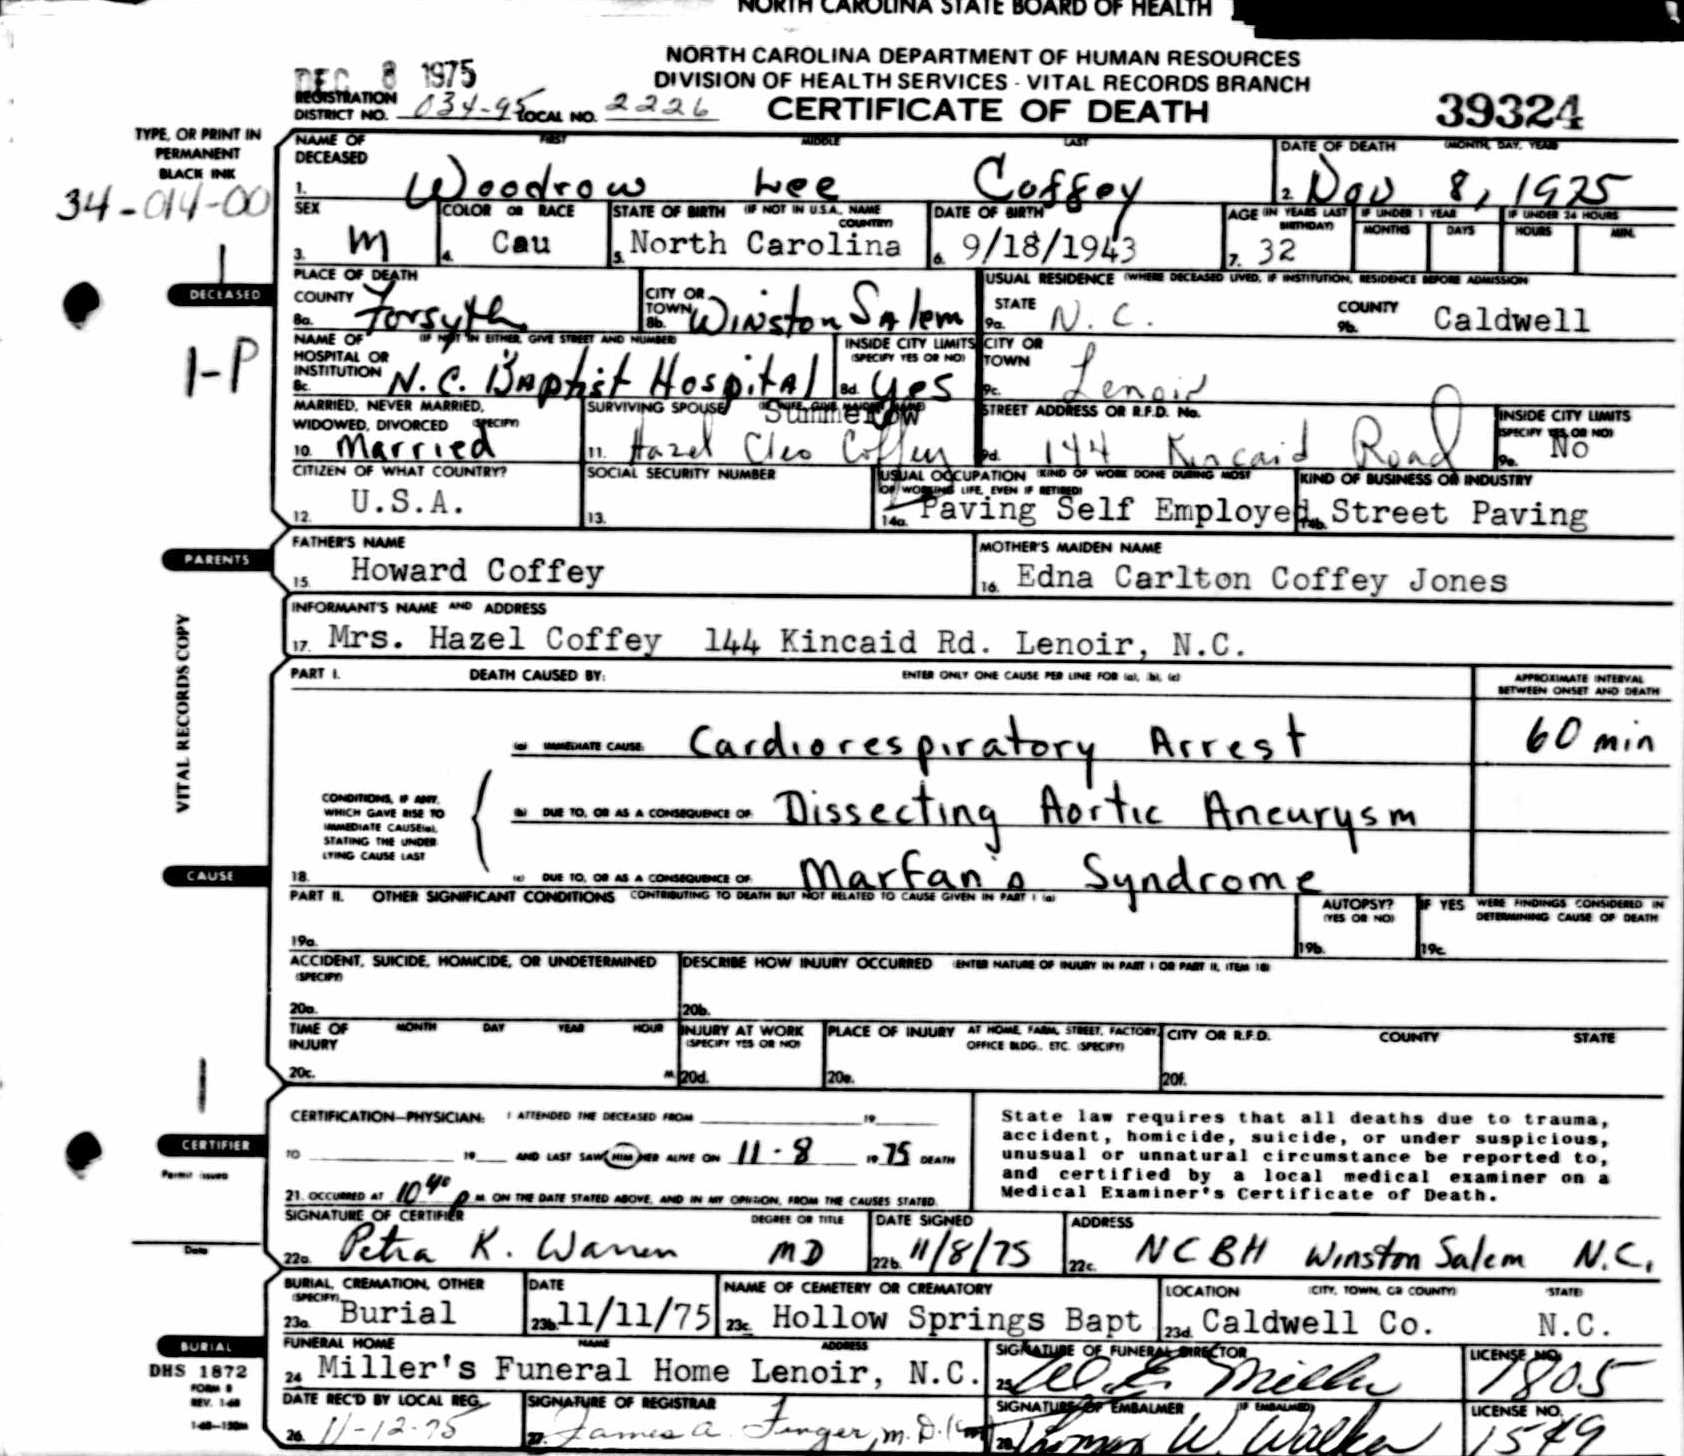 NORTH CAROLINA STATE BOARD OF HEALTH
NORTH CAROLINA DEPARTMENT OF HUMAN RESOURCES
DEC 8 1975
DIVISION OF HEALTH SERVICES - VITAL RECORDS BRANCH
REGISTRATION DISTRICT NO. 034-95 LOCAL NO. 2226
CERTIFICATE OF DEATH
39324
TYPE, OR PRINT IN PERMANENT BLACK INK
34-014-00
NAME OF DECEASED FIRST MIDDLE LAST
1. Woodrow Lee Coffey
DATE OF DEATH (MONTH, DAY, YEAR)
2. Nov 8, 1975
SEX
3. M
COLOR OR RACE
4. Cau
STATE OF BIRTH (IF NOT IN U.S.A., NAME COUNTRY)
5. North Carolina
DATE OF BIRTH
6. 9/18/1943
AGE (IN YEARS LAST BIRTHDAY)
7. 32
IF UNDER 1 YEAR
MONTHS DAYS
IF UNDER 24 HOURS
HOURS MIN.
DECEASED
1-P
PLACE OF DEATH
COUNTY
8a. Forsyth
CITY OR TOWN
8b. Winston Salem
USUAL RESIDENCE (WHERE DECEASED LIVED, IF INSTITUTION, RESIDENCE BEFORE ADMISSION
STATE
9a. N. C.
COUNTY
9b. Caldwell
NAME OF HOSPITAL OR INSTITUTION (IF NOT IN EITHER, GIVE STREET AND NUMBER)
8c. N.C. Baptist Hospital
INSIDE CITY LIMITS (SPECIFY YES OR NO)
8d. yes
CITY OR TOWN
9c. Lenoir
MARRIED, NEVER MARRIED, WIDOWED, DIVORCED (SPECIFY)
10. Married
SURVIVING SPOUSE (IF WIFE, GIVE MAIDEN NAME)
Summerow
11. Hazel Cleo Coffey
STREET ADDRESS OR R.F.D. No.
9d. 144 Kincaid Road
INSIDE CITY LIMITS (SPECIFY YES OR NO)
9e. No
CITIZEN OF WHAT COUNTRY?
12. U.S.A.
SOCIAL SECURITY NUMBER
13.
USUAL OCCUPATION (KIND OF WORK DONE DURING MOST OF WORKING LIFE, EVEN IF RETIRED)
14a. Paving Self Employed
KIND OF BUSINESS OR INDUSTRY
14b. Street Paving
PARENTS
FATHER'S NAME
15. Howard Coffey
MOTHER'S MAIDEN NAME
16. Edna Carlton Coffey Jones
INFORMANT'S NAME AND ADDRESS
17. Mrs. Hazel Coffey 144 Kincaid Rd. Lenoir, N.C.
VITAL RECORDS COPY
PART I. DEATH CAUSED BY: ENTER ONLY ONE CAUSE PER LINE FOR (a), (b), (c)
APPROXIMATE INTERVAL BETWEEN ONSET AND DEATH
(a) IMMEDIATE CAUSE: Cardiorespiratory Arrest 60 min
CONDITIONS, IF ANY, WHICH GAVE RISE TO IMMEDIATE CAUSE(a), STATING THE UNDERLYING CAUSE LAST
(b) DUE TO, OR AS A CONSEQUENCE OF: Dissecting Aortic Aneurysm
CAUSE
18. (c) DUE TO, OR AS A CONSEQUENCE OF: Marfan's Syndrome
PART II. OTHER SIGNIFICANT CONDITIONS CONTRIBUTING TO DEATH BUT NOT RELATED TO CAUSE GIVEN IN PART I (a)
19a.
AUTOPSY? (YES OR NO)
19b.
IF YES WERE FINDINGS CONSIDERED IN DETERMINING CAUSE OF DEATH
19c.
ACCIDENT, SUICIDE, HOMICIDE, OR UNDETERMINED (SPECIFY)
20a.
DESCRIBE HOW INJURY OCCURRED (ENTER NATURE OF INJURY IN PART I OR PART II, ITEM 18)
20b.
TIME OF INJURY MONTH DAY YEAR HOUR
20c. M.
INJURY AT WORK (SPECIFY YES OR NO)
20d.
PLACE OF INJURY AT HOME, FARM, STREET, FACTORY, OFFICE BLDG., ETC. (SPECIFY)
20e.
CITY OR R.F.D. COUNTY STATE
20f.
CERTIFIER
Permit issued
Date
CERTIFICATION—PHYSICIAN: I ATTENDED THE DECEASED FROM 19
TO 19 AND LAST SAW HIM/HER ALIVE ON 11-8 19 75 DEATH
21. OCCURRED AT 10 40 P M. ON THE DATE STATED ABOVE, AND IN MY OPINION, FROM THE CAUSES STATED.
State law requires that all deaths due to trauma,
accident, homicide, suicide, or under suspicious,
unusual or unnatural circumstance be reported to,
and certified by a local medical examiner on a
Medical Examiner's Certificate of Death.
SIGNATURE OF CERTIFIER DEGREE OR TITLE
22a. Petra K. Warren MD
DATE SIGNED
22b. 11/8/75
ADDRESS
22c. NCBH Winston Salem N.C.
BURIAL, CREMATION, OTHER (SPECIFY)
23a. Burial
DATE
23b. 11/11/75
NAME OF CEMETERY OR CREMATORY
23c. Hollow Springs Bapt
LOCATION (CITY, TOWN, OR COUNTY) (STATE)
23d. Caldwell Co. N.C.
BURIAL
DHS 1872
FORM 8
REV. 1-68
FUNERAL HOME NAME ADDRESS
24. Miller's Funeral Home Lenoir, N.C.
SIGNATURE OF FUNERAL DIRECTOR
25. W. E. Miller
LICENSE NO.
1805
DATE REC'D BY LOCAL REG.
26. 11-12-75
SIGNATURE OF REGISTRAR
27. James A. Finger, M.D.
SIGNATURE OF EMBALMER (IF EMBALMED)
28. Thomas W. Walker
LICENSE NO.
1549